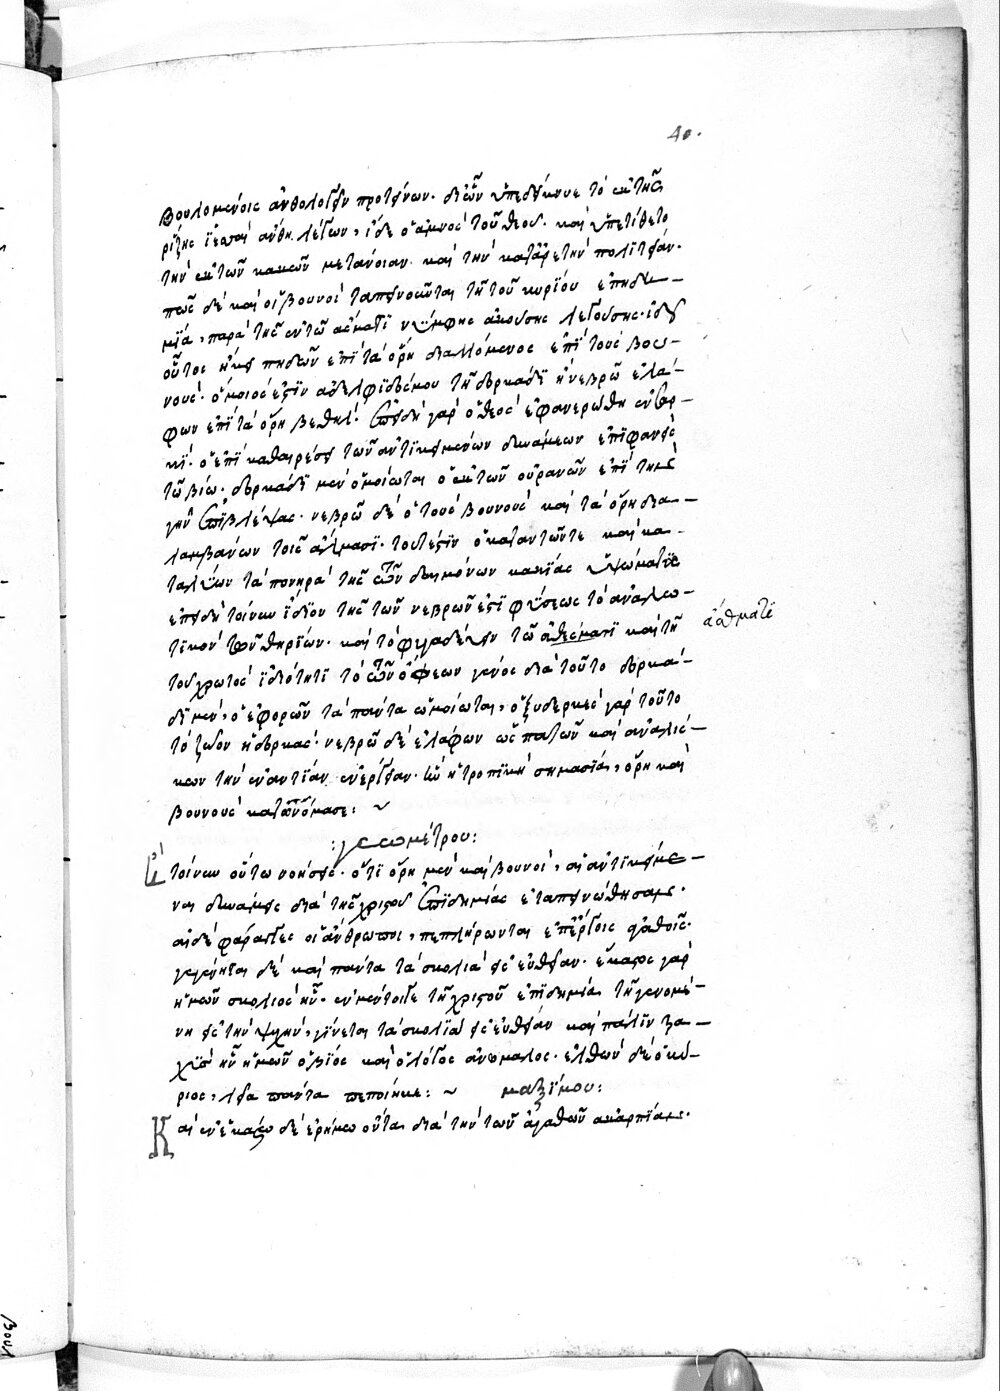 40.
βουλομένοις ἀνθολογεῖν προτείνων. δι' ὧν ὑπεδείκνυε τὸ ἐκ τῆς
ῥίζης ἰεσσαὶ ἄνθη λέγων, ἴδε ὁ ἀμνὸς τοῦ θεοῦ. καὶ ὑπετίθετο
τὴν ἐκ τῶν κακῶν μετάνοιαν καὶ τὴν κατ' ἀρετὴν πολιτείαν.
πῶς δὲ καὶ οἱ βουνοὶ ταπεινοῦνται τῇ τοῦ κυρίου ἐπιδη—
μίᾳ, παρὰ τῆς ἐν τῷ ᾄσματι νύμφης ἀκούσῃς λεγούσης. ἰδοὺ
οὗτος ἥκει πηδῶν ἐπὶ τὰ ὄρη διαλλόμενος ἐπὶ τοὺς βου—
νούς. ὅμοιός ἐστιν ἀδελφιδός μου τῇ δορκάδι ἢ νεβρῷ ἐλά—
φων ἐπὶ τὰ ὄρη βεθήλ. ἐπειδὴ γὰρ ὁ θεὸς ἐφανερώθη ἐν σαρ—
κί. ὁ ἐπὶ καθαιρέσει τῶν ἀντικειμένων δυνάμεων ἐπιφανεὶς
τῷ βίῳ. δορκάδι μὲν ὁμοίωται ὁ ἐκ τῶν οὐρανῶν ἐπὶ τὴν
γῆν ἐπιβλέψας. νεβρῷ δὲ ὁ τοὺς βουνοὺς καὶ τὰ ὄρη δια—
λαμβάνων τοῖς ἅλμασι. τουτέστιν ὁ καταντῶν τε καὶ κα—
τὰ πονηρὰ τῆς τῶν δαιμόνων κακίας ὑψώματα
ἐπειδὴ τοίνυν ἴδιον τῆς τῶν νεβρῶν ἐστι φύσεως τὸ ἀναλω—
τικὸν τῶν θηρίων. καὶ τὸ φυγαδεύειν τῷ ἀθέσματι καὶ τῇ
ἄσθματι
τοῦ χρωτὸς ἰδιότητι τὸ τῶν ὄφεων γένος διὰ τοῦτο δορκά—
δι μὲν, ὁ ἐφορῶν τὰ πάντα ὡμοίωται, ὀξυδερκὲς γὰρ τοῦτο
τὸ ζῶον ἡ δορκάς. νεβρῷ δὲ ἐλάφων ὡς πατῶν καὶ ἀναλίσ—
κων τὴν ἐναντίαν ἐνέργειαν. ἣν ἡ τροπικὴ σημασία, ὄρη καὶ
βουνοὺς κατωνόμασε: ~
: γεωμέτρου:
Ἔτι τοίνυν οὕτω νοήσεις. ὅτι ὄρη μὲν καὶ βουνοὶ, αἱ ἀντικείμε—
ναι δυνάμεις διὰ τῆς χριστοῦ ἐπιδημίας ἐταπεινώθησαν.
αἱ δὲ φάραγγες οἱ ἄνθρωποι, πεπλήρωνται ἐπ' ἔργοις ἀγαθοῖς.
γεγένηται δὲ καὶ πάντα τὰ σκολιὰ εἰς εὐθεῖαν. ἕκαστος γὰρ
ἡμῶν σκολιὸς ἦν. ἐν μέντοιγε τῇ χριστοῦ ἐπιδημίᾳ τῇ γενομέ—
νῃ εἰς τὴν ψυχὴν, γίνεται τὰ σκολιὰ εἰς εὐθεῖαν καὶ πάλιν τρα—
χὺς ἦν ἡμῶν ὁ βίος καὶ ὁ λόγος ἀνώμαλος. ἐλθὼν δὲ ὁ κύ—
ριος, λεῖα πάντα πεποίηκε: ~ μαξίμου:
Καὶ ἐν ἑκάστῳ δὲ ἐρήμῳ οὖσα διὰ τὴν τῶν ἀγαθῶν ἀκαρπίαν.